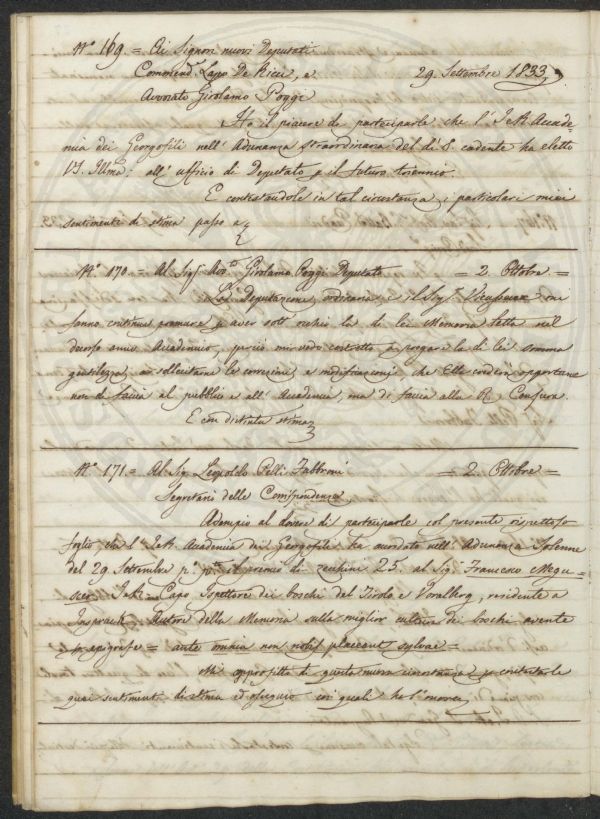 N.º 169. = Ai Signori nuovi Deputati
Commend.r Lapo De Ricci, e 29. Settembre 1833
Avvocato Girolamo Poggi
Ho il piacere di parteciparle che l'I. e R. Accade-
mia dei Georgofili nell'Adunanza straordinaria del dì 8. cadente ha eletto
V.S. Illma: all'ufficio di Deputato p il futuro triennio.
E contestandole in tal circostanza i particolari miei
sentimenti di stima passo a
N.º 170. = Al Sig.r Avv.to Girolamo Poggi Deputato = 2. Ottobre =
La Deputazione ordinaria e il Sig.r Vieusseux mi
fanno continue premure p aver sott'occhio la di lei Memoria letta nel
decorso anno Accademico, perciò mi vedo costretto a pregare la di lei somma
gentilezza a sollecitarne le correzioni e modificazioni che Ella crederà opportune
non di faccia al pubblico e all'Accademia, ma di faccia alla R. Censura.
E con distinta stima
N.º 171. = Al Sig. Leopoldo Pelli Fabbroni = 2. Ottobre =
Segretario delle Corrispondenze
Adempio al dovere di parteciparle col presente rispettoso
foglio che l'I. e R. Accademia dei Georgofili ha accordato nell'Adunanza Solenne
del 29. Settembre p.º p.to il premio di zecchini 25. al Sig. Francesco
I. e R. Capo Ispettore dei boschi del Tirolo e Voralberg, residente a
Inspruch Autore della Memoria sulla miglior cultura dei boschi avente
p epigrafe = ante omnia non nobis placeant sylvae =
Mi approfitto di questa nuova circostanza p contestarle
quei sentimenti di stima ed ossequio coi quali ho l'onore